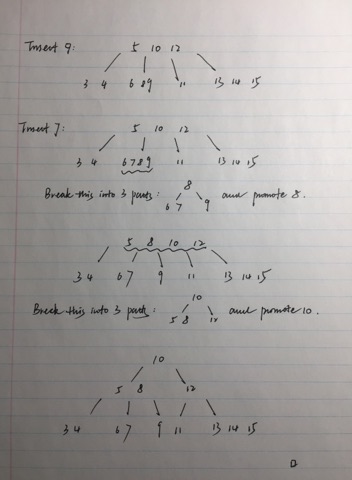 Insert 9:   5  10  12
3 4   6 8 9   11   13 14 15
Insert 7:   5  10  12
3 4   6 7 8 9   11   13 14 15
8
Break this into 3 parts:   and promote 8.
6 7   9
5  8  10  12
3 4   6 7   9   11   13 14 15
10
Break this into 3 parts:   and promote 10.
5 8   12
10
5  8   12
3 4   6 7   9   11   13 14 15